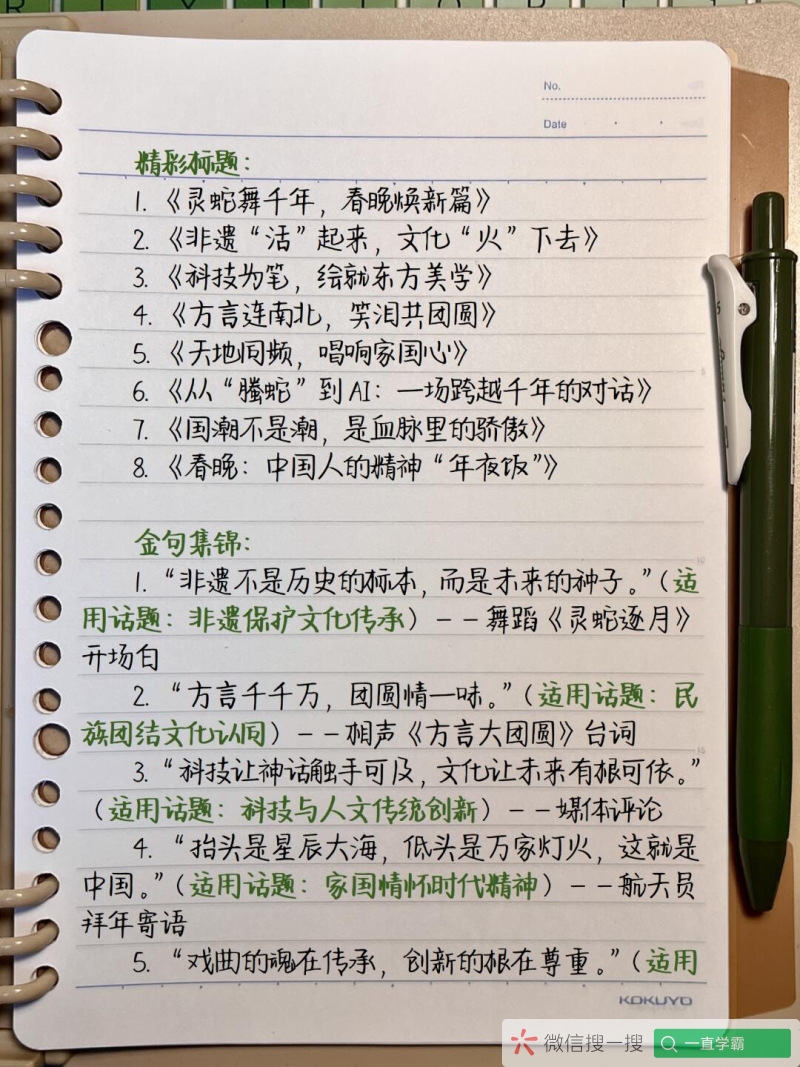 No.
Date
精彩标题：
1. 《灵蛇舞千年，春晚焕新篇》
2. 《非遗“活”起来，文化“火”下去》
3. 《科技为笔，绘就东方美学》
4. 《方言连南北，笑泪共团圆》
5. 《天地同频，唱响家国心》
6. 《从“螣蛇”到AI：一场跨越千年的对话》
7. 《国潮不是潮，是血脉里的骄傲》
8. 《春晚：中国人的精神“年夜饭”》
金句集锦：
1. “非遗不是历史的标本，而是未来的种子。”（适
用话题：非遗保护文化传承）——舞蹈《灵蛇逐月》
开场白
2. “方言千千万，团圆情一味。”（适用话题：民
族团结文化认同）——相声《方言大团圆》台词
3. “科技让神话触手可及，文化让未来有根可依。”
（适用话题：科技与人文传统创新）——媒体评论
4. “抬头是星辰大海，低头是万家灯火，这就是
中国。”（适用话题：家国情怀时代精神）——航天员
拜年寄语
5. “戏曲的魂在传承，创新的根在尊重。”（适用
KOKUYO
微信搜一搜 一直学霸